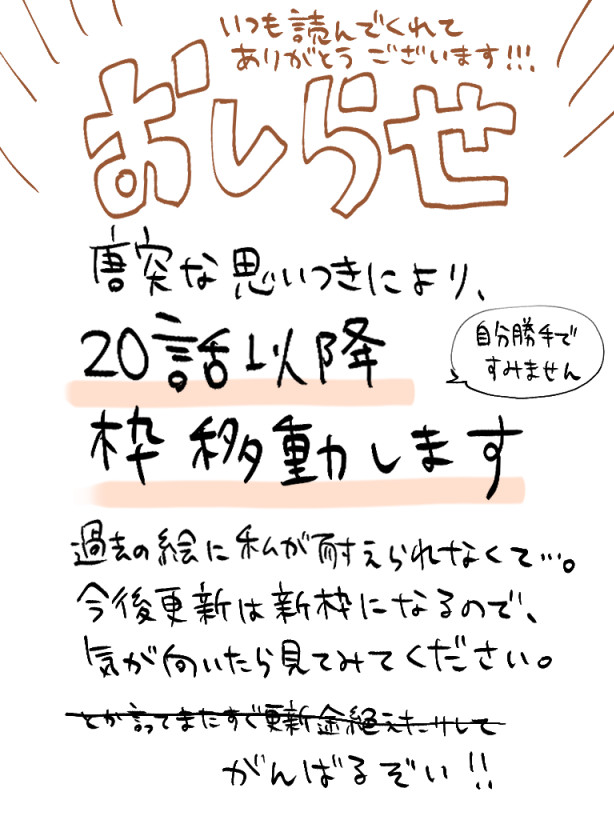 いつも読んでくれて
ありがとうございます!!!
おしらせ
唐突な思いつきにより、
20話以降
自分勝手で
すみません
枠移動します
過去の絵に私が耐えられなくて…。
今後更新は新枠になるので、
気が向いたら見てみてください。
とか言ってまたすぐ更新金絶えたりして
がんばるぞい!!